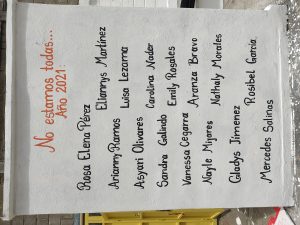 No estamos todas...
Año 2021
Rosa Elena Pérez
Eliannys Martínez
Arianny Ramos
Luisa Lezama
Asyari Olivares
Carolina Nader
Sandra Galindo
Emily Rosales
Vanessa Cegarra
Aranza Bravo
Nayle Mijares
Nathaly Morales
Gladys Jimenez
Rosibel García
Mercedes Salinas